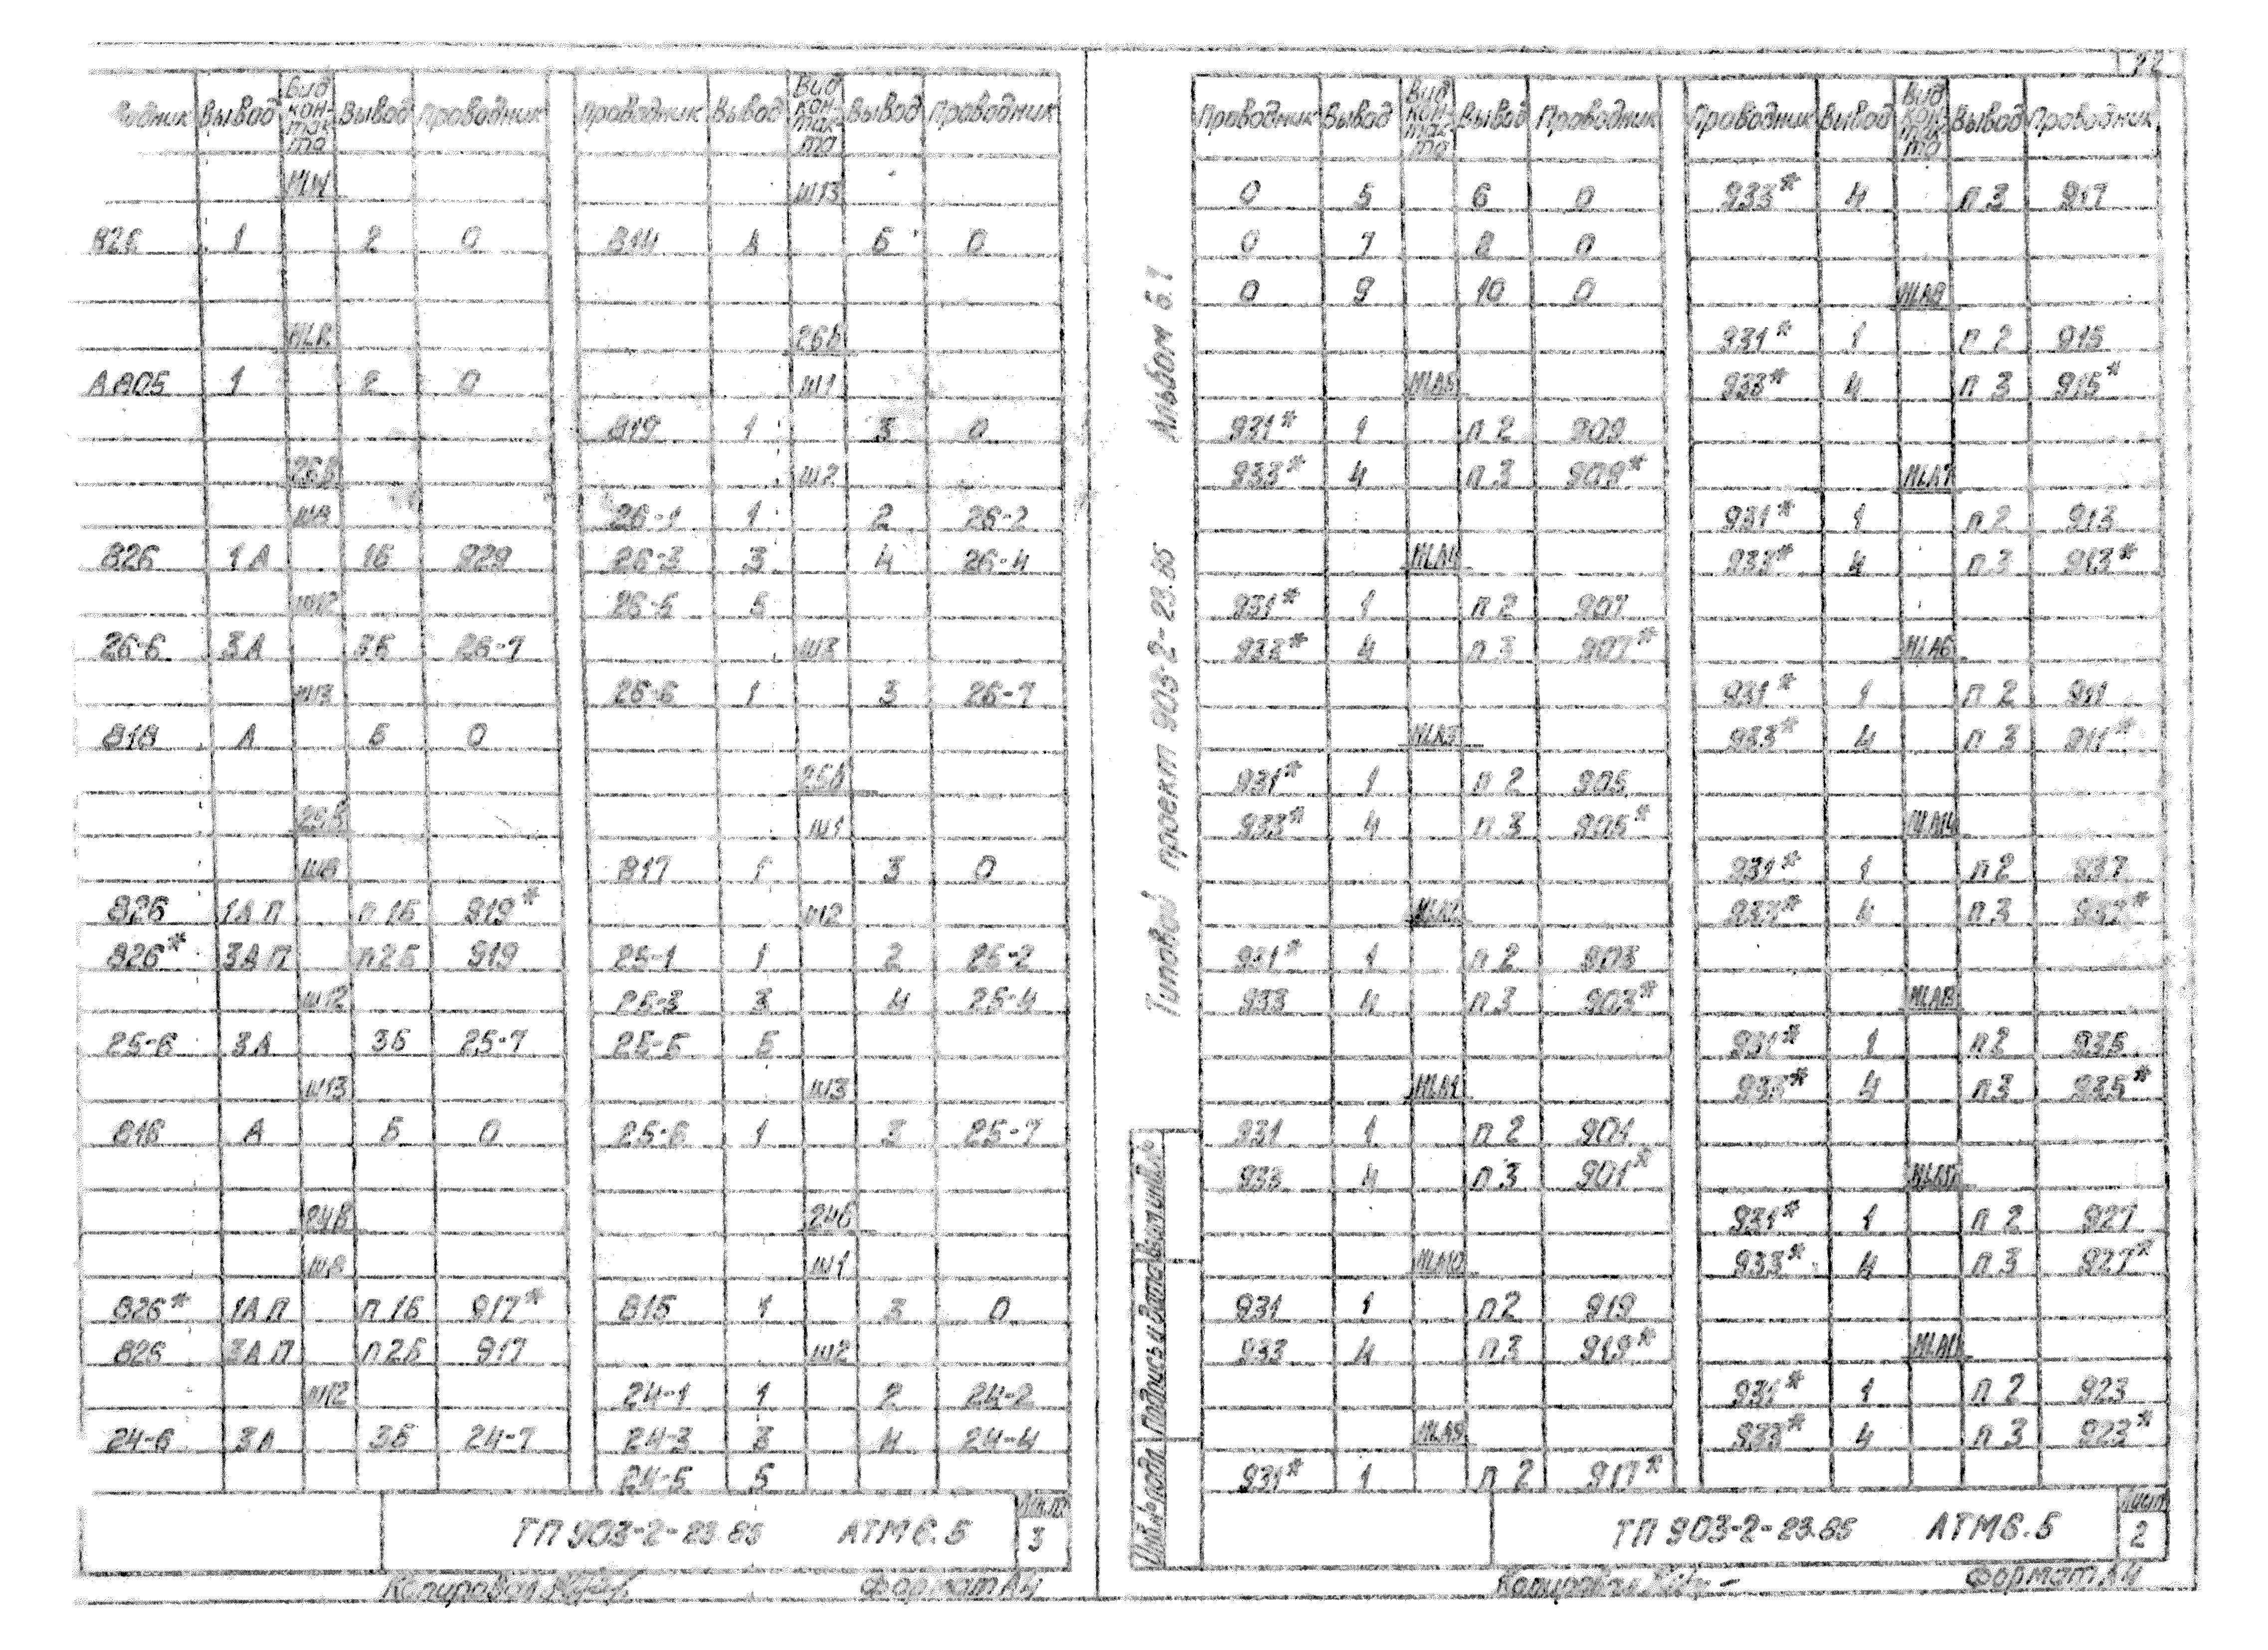 Вывод Вид кон-так-та Вывод Проводник
826 1 2 0
А805 1 2 0
26В
Ш8
826 1А 1Б 929
Ш12
26-6 3А 3Б 26-7
Ш13
818 А Б 0
25В
Ш8
826 1АП п1Б 919*
826* 3АП п2Б 919
Ш12
25-6 3А 3Б 25-7
Ш13
816 А Б 0
24В
Ш8
826* 1АП п1Б 917*
826 3АП п2Б 917
Ш12
24-6 3А 3Б 24-7
Проводник Вывод Вид кон-так-та Вывод Проводник
Ш13
814 А Б 0
26Б
Ш1
819 1 3 0
Ш2
26-1 1 2 26-2
26-3 3 4 26-4
26-5 5
Ш3
26-6 1 3 26-7
Ш1
817 1 3 0
Ш2
25-1 1 2 25-2
25-3 3 4 25-4
25-5 5
Ш3
25-6 1 3 25-7
24Б
Ш1
815 1 3 0
Ш2
24-1 1 2 24-2
24-3 3 4 24-4
24-5 5
ТП 903-2-23.85 АТМ6.5
Лист
3
Копировал
Формат А4
22
Альбом 6.1
Типовой проект 903-2-23.85
Проводник Вывод Вид кон-так-та Вывод Проводник
0 5 6 0
0 7 8 0
0 9 10 0
HLA5
931* 1 п2 909
933* 4 п3 909*
HLA4
931* 1 п2 907
933* 4 п3 907*
HLA3
931* 1 п2 905
933* 4 п3 905*
HLA2
931* 1 п2 903
933 4 п3 903*
HLA1
931 1 п2 901
933 4 п3 901*
HLA10
931 1 п2 919
933 4 п3 919*
HLA9
931* 1 п2 917*
Проводник Вывод Вид кон-так-та Вывод Проводник
933* 4 п3 917
HLA8
931* 1 п2 915
933* 4 п3 915*
HLA7
931* 1 п2 913
933* 4 п3 913*
HLA6
931* 1 п2 911
933* 4 п3 911*
HLA14
931* 1 п2 937
933* 4 п3 937*
HLA13
931* 1 п2 935
933* 4 п3 935*
931* 1 п2 927
933* 4 п3 927*
HLA11
931* 1 п2 923
933* 4 п3 923*
Инв.№ подл. Подпись и дата Взам.инв.№
ТП 903-2-23.85 АТМ6.5
Лист
2
Копировал
Формат А4